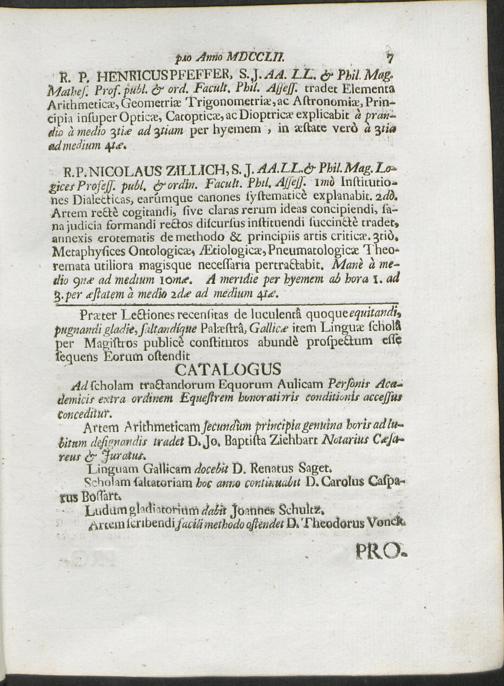 pao Anno MDCCLII. 7
R. P. HENRICUS PFEFFER, S. J. AA. LL. & Phil. Mag.
Mathes. Prof. publ. & ord. Facult. Phil. Assess. tradet Elementa
Arithmeticæ, Geometriæ Trigonometriæ, ac Astronomiæ, Prin-
cipia insuper Opticæ, Catopticæ, ac Dioptricæ explicabit à pran-
dio à medio 3tiæ ad 3tiam per hyemem, in æstate verò à 3tia
ad medium 4tæ.
R. P. NICOLAUS ZILLICH, S. J. AA. LL. & Phil. Mag. Lo-
gices Profess. publ. & ordin. Facult. Phil. Assess. 1mò Institutio-
nes Dialecticas, earumque canones systematicè explanabit. 2dò.
Artem rectè cogitandi, sive claras rerum ideas concipiendi, sa-
na judicia formandi rectos discursus instituendi succinctè tradet,
annexis erotematis de methodo & principiis artis criticæ. 3tiò.
Metaphysices Ontologicæ, Ætiologicæ, Pneumatologicæ Theo-
remata utiliora magisque necessaria pertractabit. Manè à me-
dio 9næ ad medium 10mæ. A meridie per hyemem ab hora 1. ad
3. per æstatem à medio 2dæ ad medium 4tæ.
Præter Lectiones recensitas de luculentâ quoque equitandi,
pugnandi gladio, saltandique Palæstrâ, Gallicæ item Linguæ scholâ
per Magistros publicè constitutos abundè prospectum esse
sequens Eorum ostendit
CATALOGUS
Ad scholam tractandorum Equorum Aulicam Personis Aca-
demicis extra ordinem Equestrem honoratioris conditionis accessus
conceditur.
Artem Arithmeticam secundùm principia genuina horis ad lu-
bitum designandis tradet D. Jo. Baptista Ziehbart Notarius Cæsa-
reus & Juratus.
Linguam Gallicam docebit D. Renatus Saget.
Scholam saltatoriam hoc anno continuabit D. Carolus Caspa-
rus Bossart.
Ludum gladiatorium dabit Joannes Schultz.
Artem scribendi facili methodo ostendet D. Theodorus Vonck.
PRO-